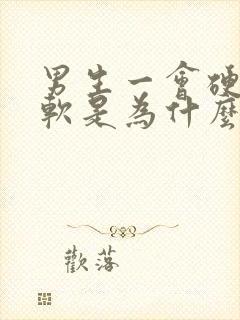 男生一會硬
軟是為什麼
歡落